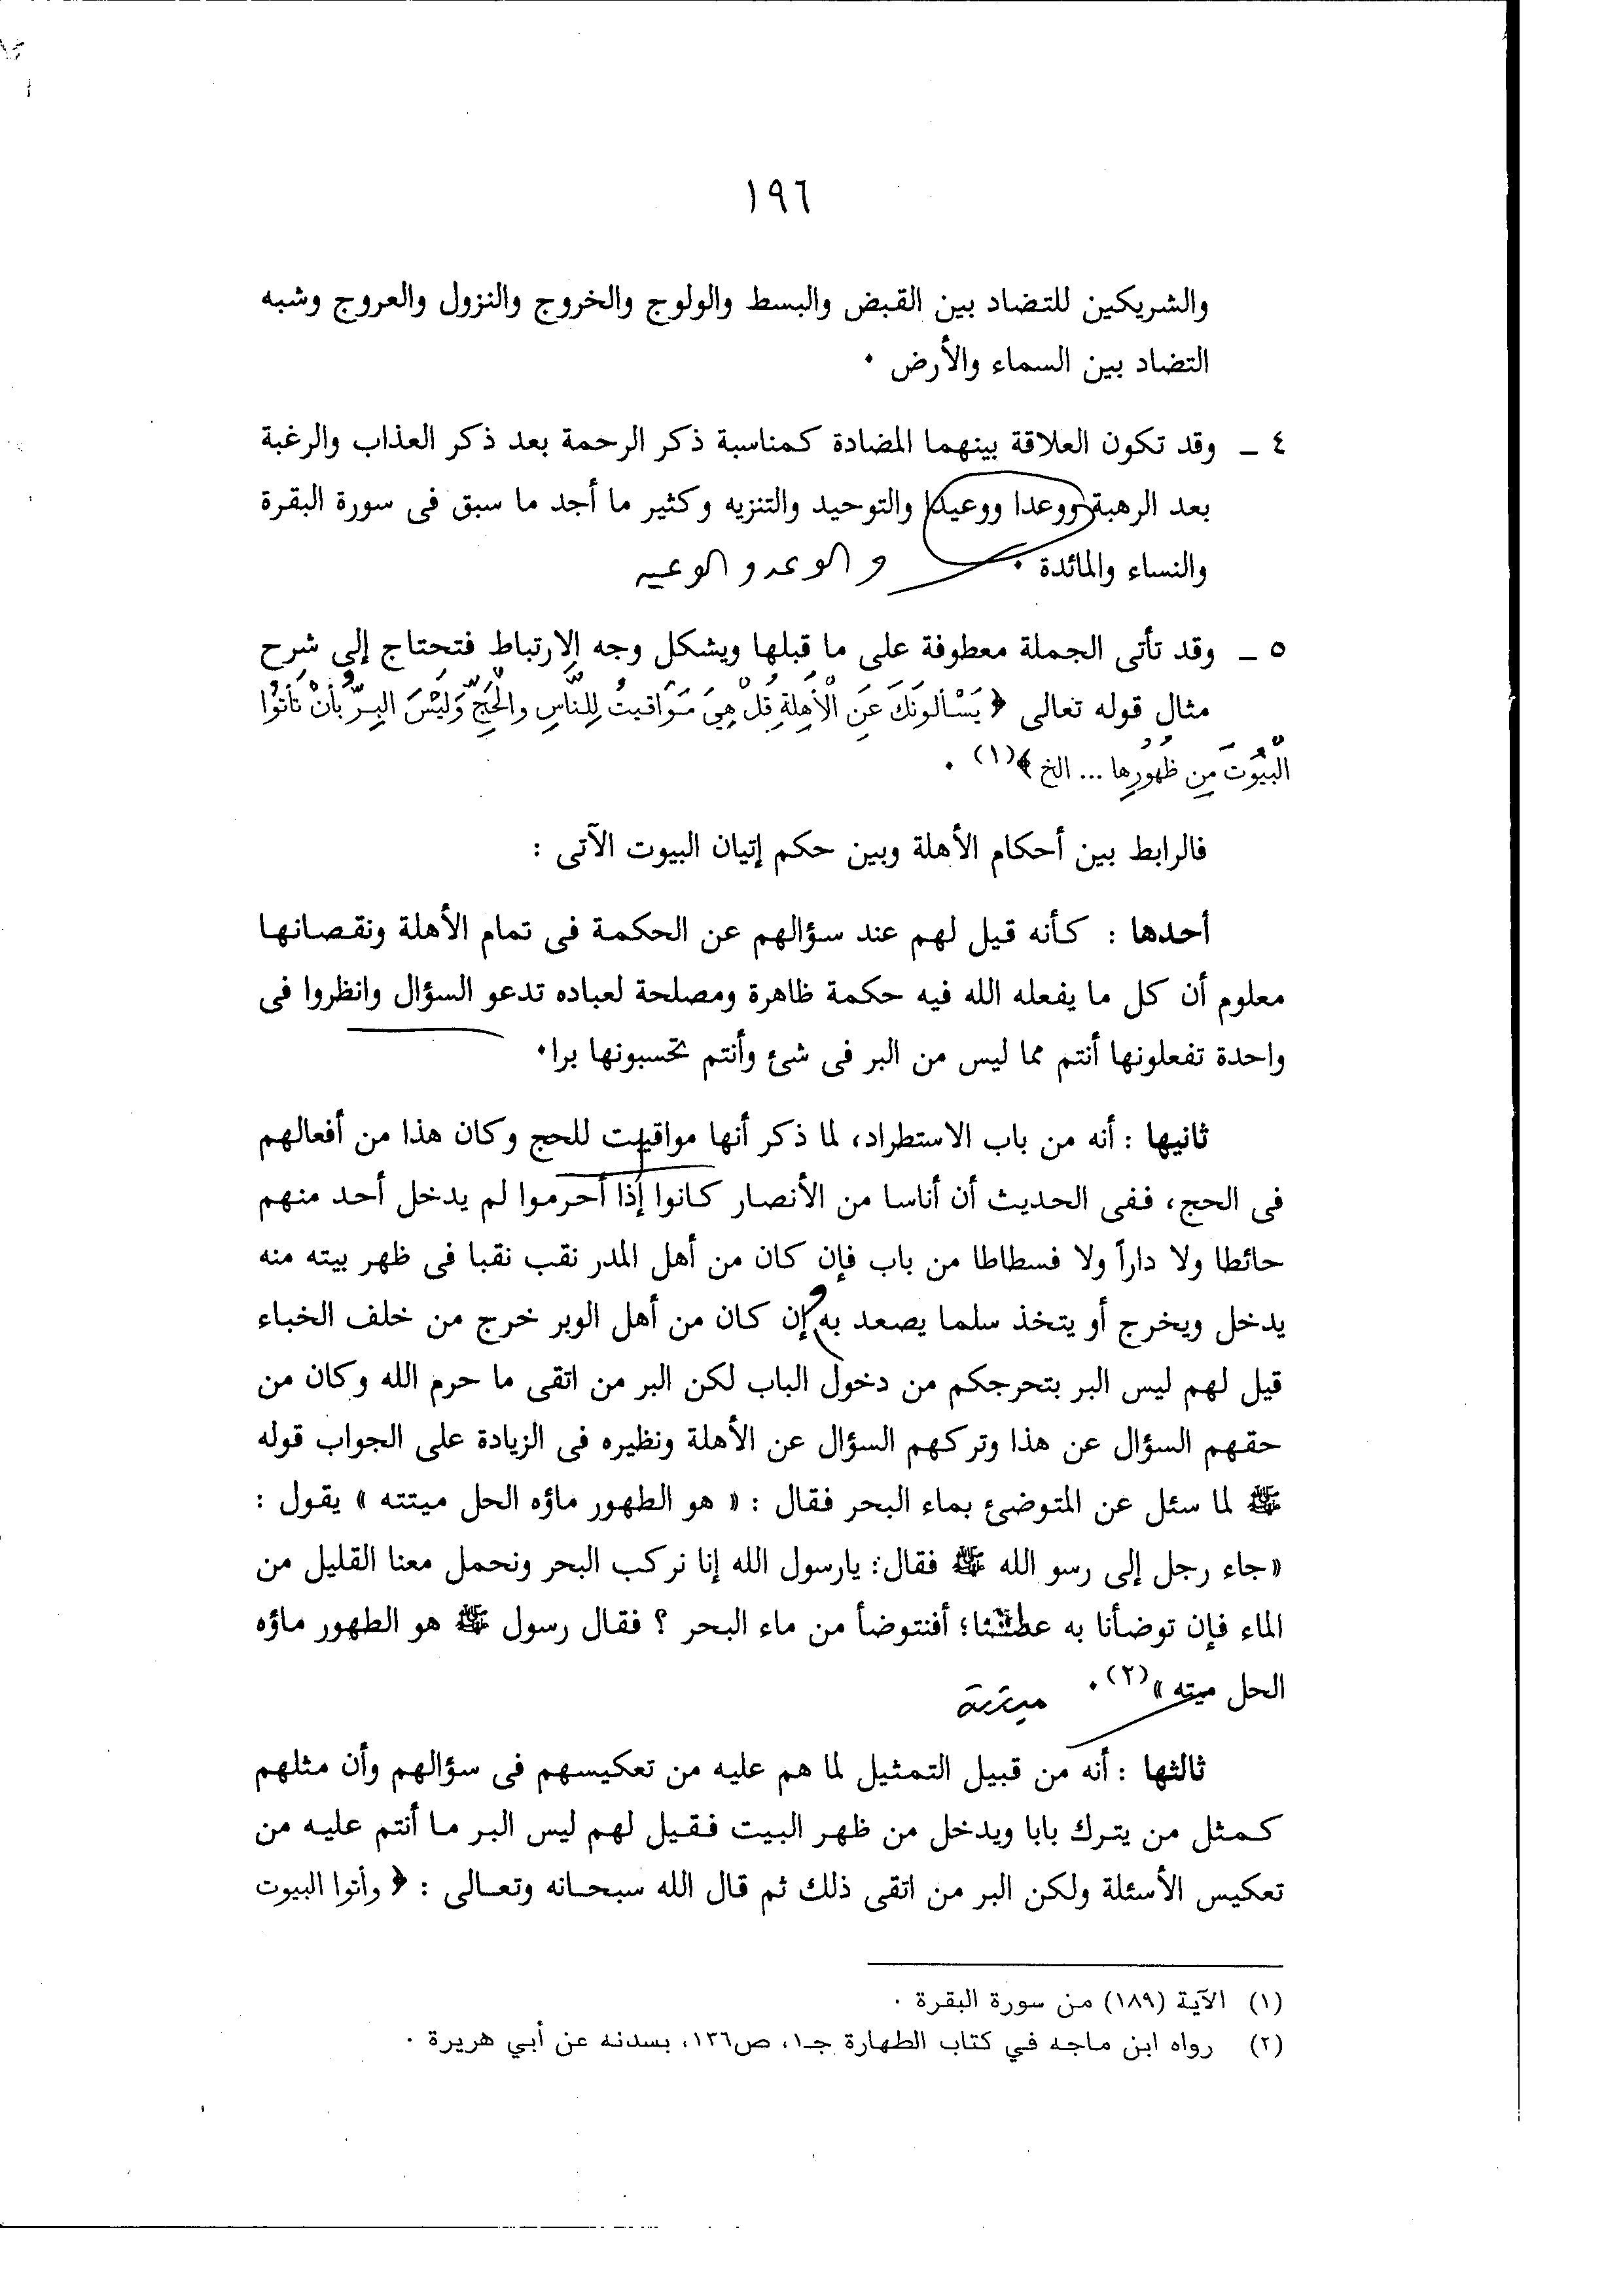 ١٩٦
والشريكين للتضاد بين القبض والبسط والولوج والخروج والنزول والعروج وشبه
التضاد بين السماء والأرض .
٤ ـ وقد تكون العلاقة بينهما المضادة كمناسبة ذكر الرحمة بعد ذكر العذاب والرغبة
بعد الرهبة ووعدا ووعيدا والتوحيد والتنزيه وكثير ما أجد ما سبق فى سورة البقرة
والنساء والمائدة . والوعد والوعيد
٥ ـ وقد تأتى الجملة معطوفة على ما قبلها ويشكل وجه الارتباط فتحتاج إلى شرح
مثال قوله تعالى ﴿ يَسْألونَكَ عَنِ الْأَهِلةِ قُلْ هِيَ مَوَاقيتُ لِلنَّاسِ والْحَجِّ وَلَيْسَ البِرُّ بأنْ تَأتُوُا
الْبُيُوُتَ مِن ظُهُورِها ... الخ ﴾(١) .
فالرابط بين أحكام الأهلة وبين حكم إتيان البيوت الآتى :
أحدها : كأنه قيل لهم عند سؤالهم عن الحكمة فى تمام الأهلة ونقصانها
معلوم أن كل ما يفعله الله فيه حكمة ظاهرة ومصلحة لعباده تدعو السؤال وانظروا فى
واحدة تفعلونها أنتم مما ليس من البر فى شئ وأنتم تحسبونها برا.
ثانيها : أنه من باب الاستطراد، لما ذكر أنها مواقيت للحج وكان هذا من أفعالهم
فى الحج، ففى الحديث أن أناسا من الأنصار كانوا إذا أحرموا لم يدخل أحد منهم
حائطا ولا داراً ولا فسطاطا من باب فإن كان من أهل المدر نقب نقبا فى ظهر بيته منه
يدخل ويخرج أو يتخذ سلما يصعد به وإن كان من أهل الوبر خرج من خلف الخباء
قيل لهم ليس البر بتحرجكم من دخول الباب لكن البر من اتقى ما حرم الله وكان من
حقهم السؤال عن هذا وتركهم السؤال عن الأهلة ونظيره فى الزيادة على الجواب قوله
ﷺ لما سئل عن المتوضئ بماء البحر فقال : « هو الطهور ماؤه الحل ميتته » يقول :
«جاء رجل إلى رسو الله ﷺ فقال: يارسول الله إنا نركب البحر ونحمل معنا القليل من
الماء فإن توضأنا به عطشنا؛ أفنتوضأ من ماء البحر ؟ فقال رسول ﷺ هو الطهور ماؤه
الحل ميته »(٢). ميتته
ثالثها : أنه من قبيل التمثيل لما هم عليه من تعكيسهم فى سؤالهم وأن مثلهم
كمثل من يترك بابا ويدخل من ظهر البيت فقيل لهم ليس البر ما أنتم عليه من
تعكيس الأسئلة ولكن البر من اتقى ذلك ثم قال الله سبحانه وتعالى : ﴿ وأتوا البيوت
(١) الآية (١٨٩) من سورة البقرة .
(٢) رواه ابن ماجه في كتاب الطهارة جـ١، ص١٣٦، بسدنه عن أبي هريرة .